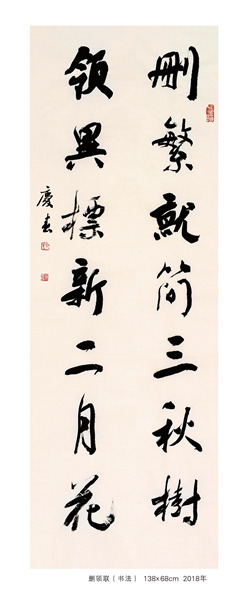 删繁就简三秋树
領異標新二月花
慶春
删领联（书法） 138×68cm 2018年